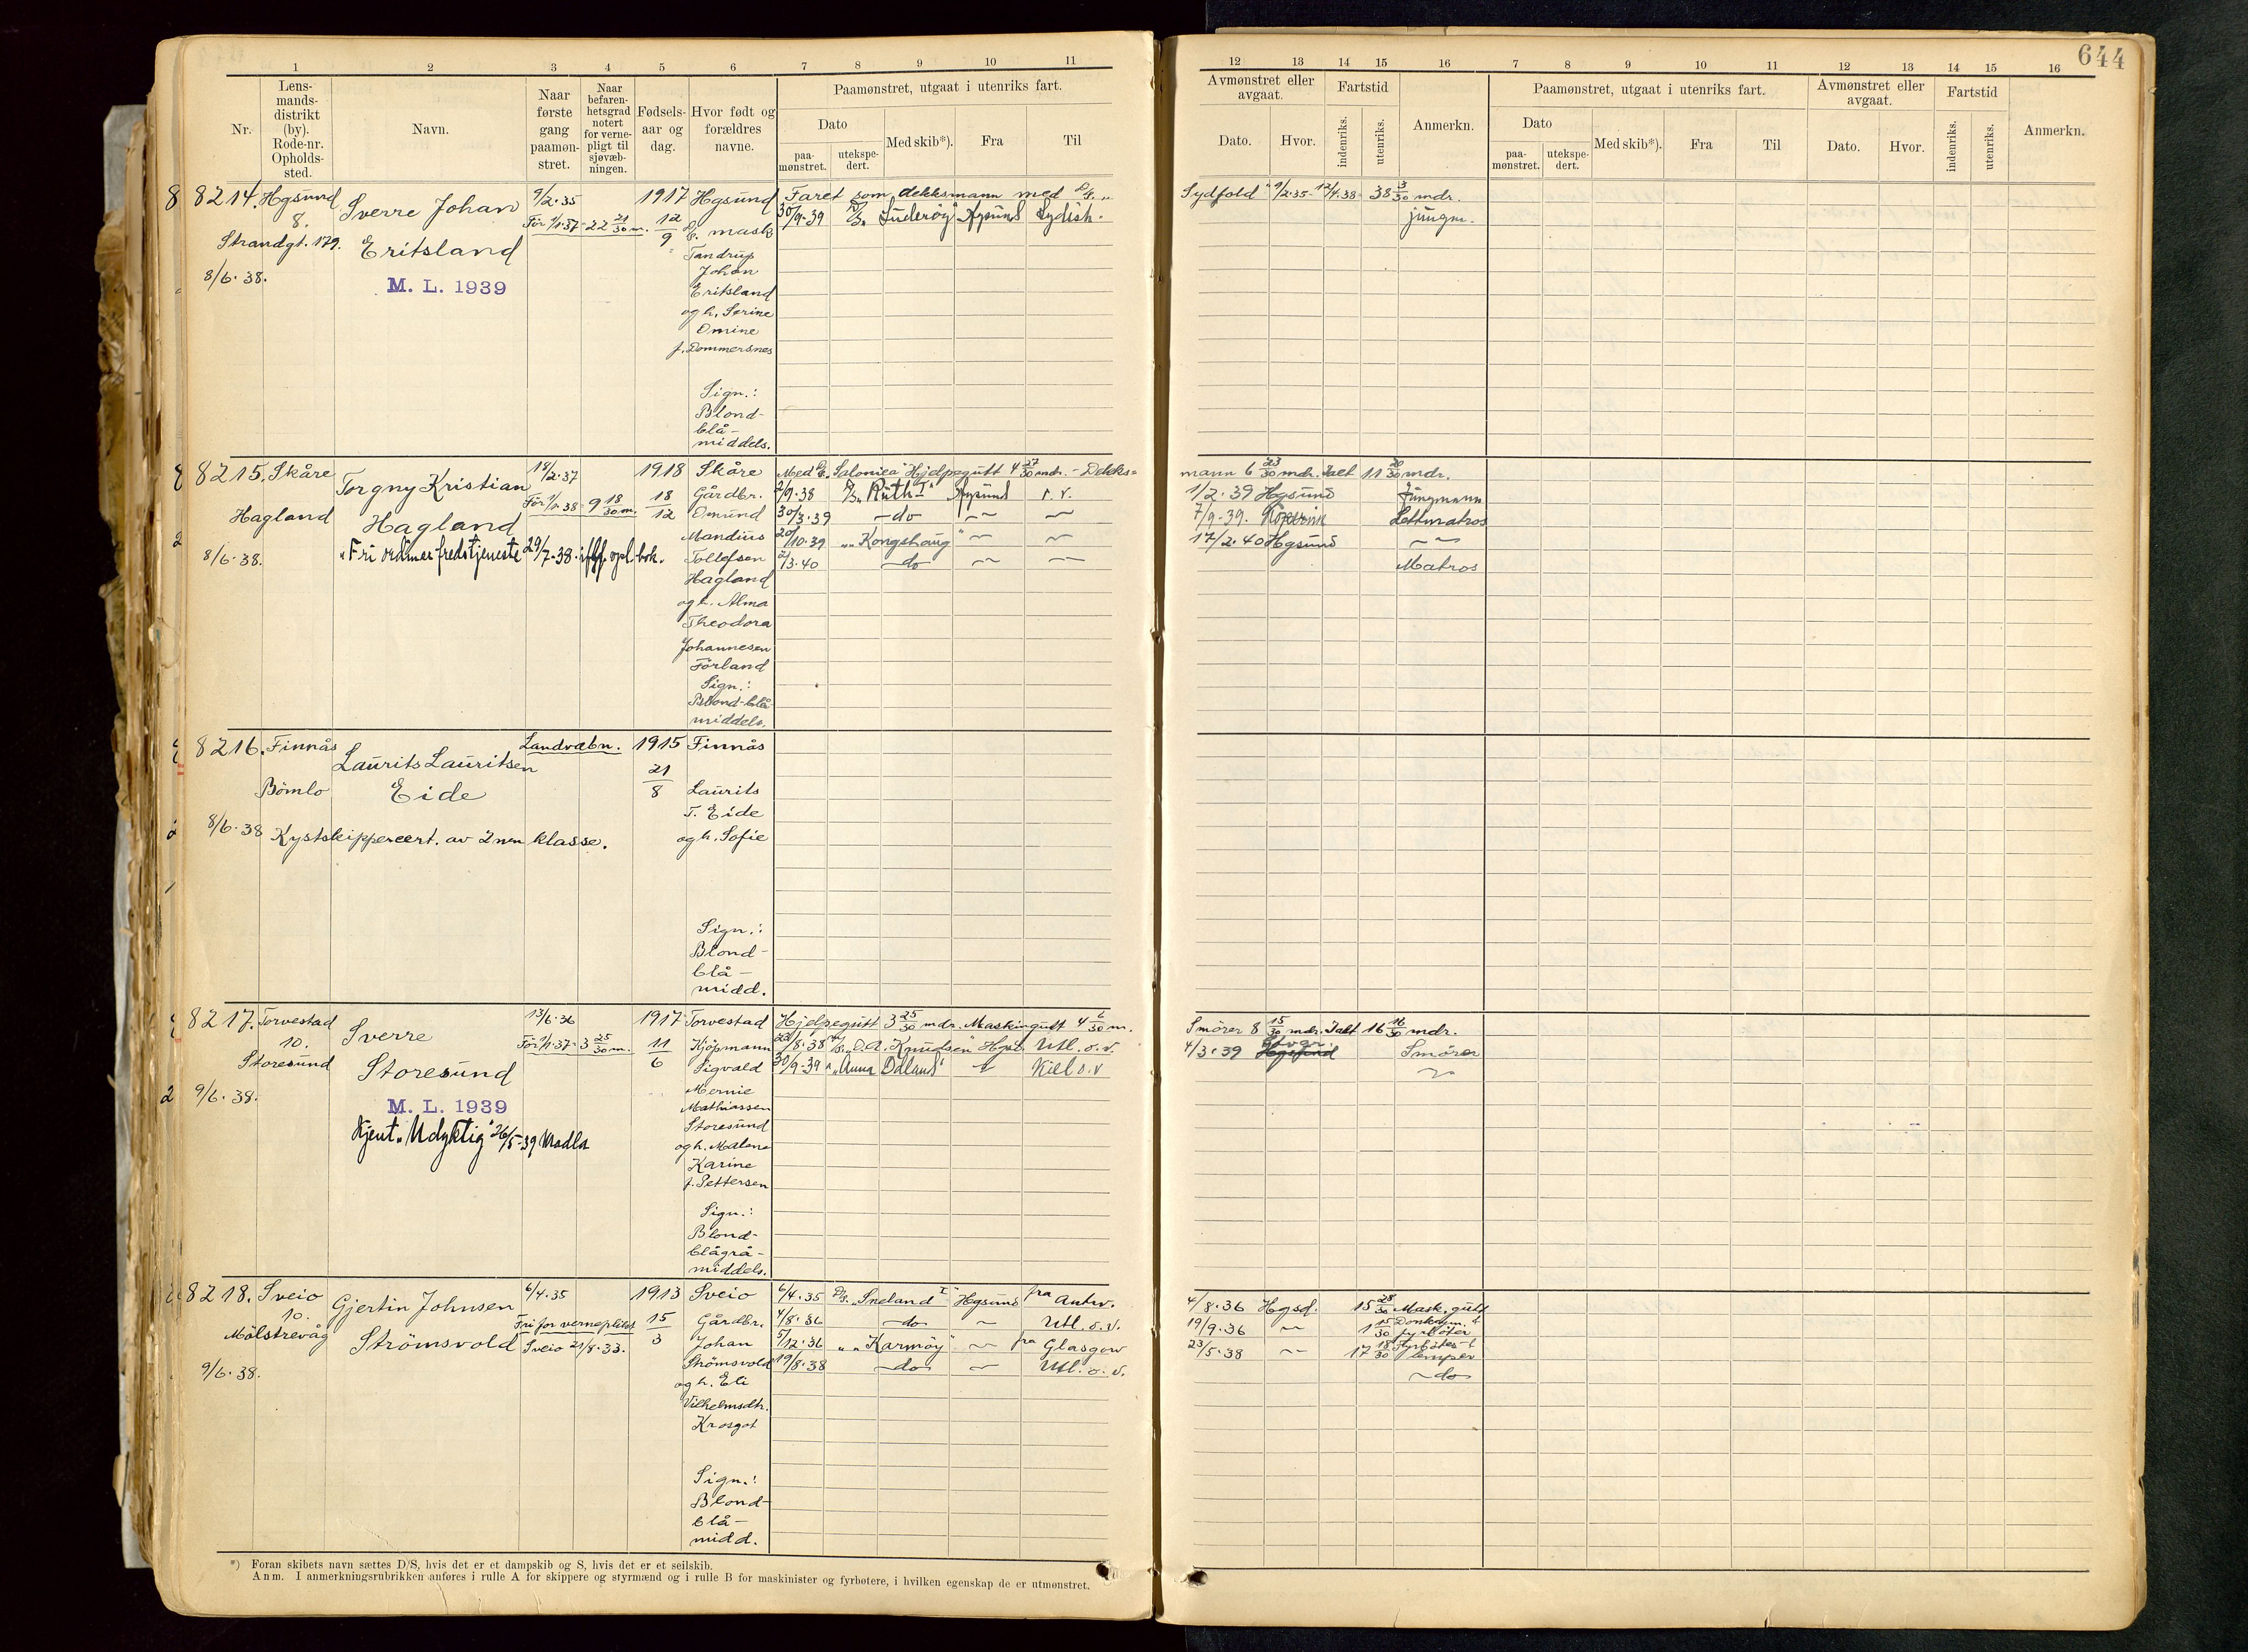 644
1 2 3 4 5 6 7 8 9 10 11
Nr.
Lens-
mands-
distrikt
(by).
Rode-nr.
Opholds-
sted.
Navn.
Naar
første
gang
paamøn-
stret.
Naar
befaren-
hetsgrad
notert
for verne-
pligt til
sjøvæb-
ningen.
Fødsels-
aar og
dag.
Hvor født og
forældres
navne.
Paamønstret, utgaat i utenriks fart.
Dato
paa-
mønstret.
utekspe-
dert.
Med skib*).
Fra
Til
12 13 14 15 16 7 8 9 10 11 12 13 14 15 16
Avmønstret eller
avgaat.
Dato.
Hvor.
Fartstid
indenriks.
utenriks.
Anmerkn.
Paamønstret, utgaat i utenriks fart.
Dato
paa-
mønstret.
utekspe-
dert.
Med skib*).
Fra
Til
Avmønstret eller
avgaat.
Dato.
Hvor.
Fartstid
indenriks.
utenriks.
Anmerkn.
8214. Hgsund
8.
Strandgt. 179.
8/6.38.
Sverre Johan
Eritsland
M. L. 1939
9/2.35
Før 1/1.37- 22 21/30 m.
1917
12/9
Hgsund
mask
Tandrup
Johan
Eritsland
og h. Serine
Omine
f. Dommersnes
Sign.:
Blond-
blå-
middels.
Faret som dekksmann med
Sydfold" 9/2.35- 12/4.38- 38 3/30 mdr.
30/9-39 "Suderøy" Hgsund Sydish.
jungm.
8215. Skåre
Hagland
8/6.38.
Torgny Kristian
Hagland
"Fri ordinær fredstjeneste 29/7.38. iflg. opl. bok.
18/2.37
Før 1/1.38 9 18/30 m.
1918
18/12
Skåre
Gårdbr.
Omund
Mandius
Tollefsen
Hagland
og h. Alma
Theodora
Johannesen
Førland
Sign.:
Blond-blå
middels.
Med "Salonica" Hjelpegutt 4 27/30 mdr. - Dekks=
mann 6 23/30 mdr. Ialt 11 20/30 mdr.
2/9.38 "Ruth I" Hgsund s. v.
1/2.39 Hgsund Jungmann
30/3.39 -do-
7/9-39. Lettmatros
20/10.39 "Kongshaug"
17/2.40 Hgsund
2/3.40 -do-
Matros
8216. Finnås
Bømlo
8/6.38
Laurits Lauritsen
Eide
Kystskippercert. av 2nen klasse.
Landvæbn.
1915
21/8
Finnås
Laurits
T. Eide
og h. Sofie
Sign.:
Blond-
blå-
midd.
8217. Torvestad
10.
Storesund
9/6.38.
Sverre
Storesund
M. L. 1939
Kjent "Udyktig" 26/5-39 Madla
13/6.36
Før 1/1.37- 3 25/30 m.
1917
11/6
Torvestad
Kjøpmann
Sigvald
Mernie
Mathiassen
Storesund
og h. Malene
Karine
f. Pettersen
Sign.:
Blond-
blågrå-
middels.
Hjelpegutt 3 25/30 mdr. Maskingutt 4 6/30 m.
Smører 8 15/30 mdr. Ialt 16 16/30 mdr.
/8.38 "O. A. Knudsen" Hgsd. Utl. o. v.
4/3.39 Hgsund Smører
30/9.39 "Anna Odland" Kiel o.v
8218. Sveio
10.
Mølstrevåg
9/6.38.
Gjertin Johnsen
Strømsvold
6/4.35
Fri for verneplikt
Sveio 21/8.33.
1913
15/3
Sveio
Gårdbr.
Johan
Strømsvold
og h. Eli
Vilhelmsdtr.
Krosgot
Sign.:
Blond-
blå-
midd.
6/4.35 D/S "Sneland I" Hgsund fra Antw.
4/8.36 Hgsd. 15 28/30 Mask. gutt
4/8.36 -do- Utl. o. v.
19/9.36 1 15/30 Donkeym. & fyrbøter
5/12.36 "Karmøy" fra Glasgow
23/5.38 17 18/30 Fyrbøter & lemper
19/8.38 -do- Utl. o. v.
-do-
*) Foran skibets navn sættes D/S, hvis det er et dampskib og S, hvis det er et seilskib.
Anm. I anmerkningsrubrikken anføres i rulle A for skippere og styrmænd og i rulle B for maskinister og fyrbøtere, i hvilken egenskap de er utmønstret.